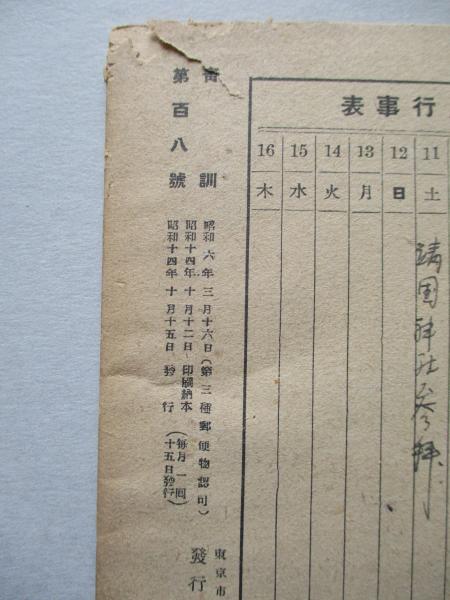 行事表
11 12 13 14 15 16
土 日 月 火 水 木
靖国神社参拝
青訓
第百八號
昭和六年三月十六日(第三種郵便物認可)
昭和十四年十月十二日印刷納本
昭和十四年十月十五日發行(毎月一回十五日發行)
東京市
發行